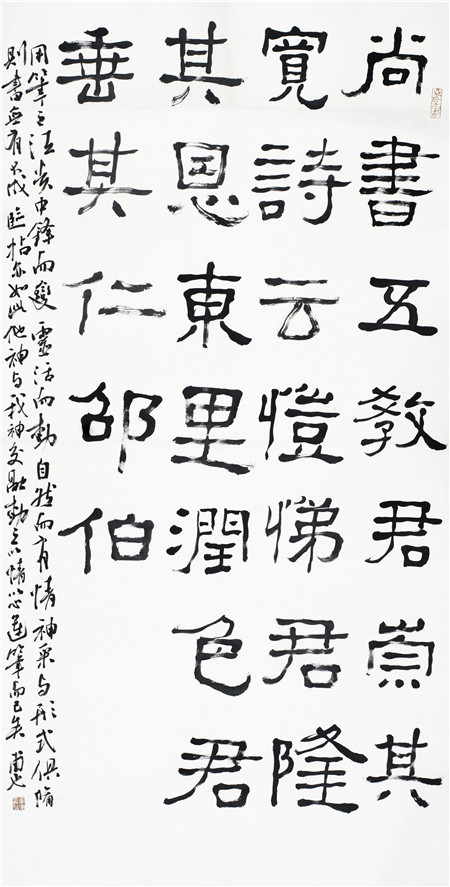 尚書五教君崇其
寬詩云愷悌君隆
其恩東里潤色君
垂其仁邵伯
用筆之法貴中鋒而變靈活而動自然而有情神采与形式俱備
則書無有不成臨帖亦如此他神与我神交融動之以情以心運筆而已矣